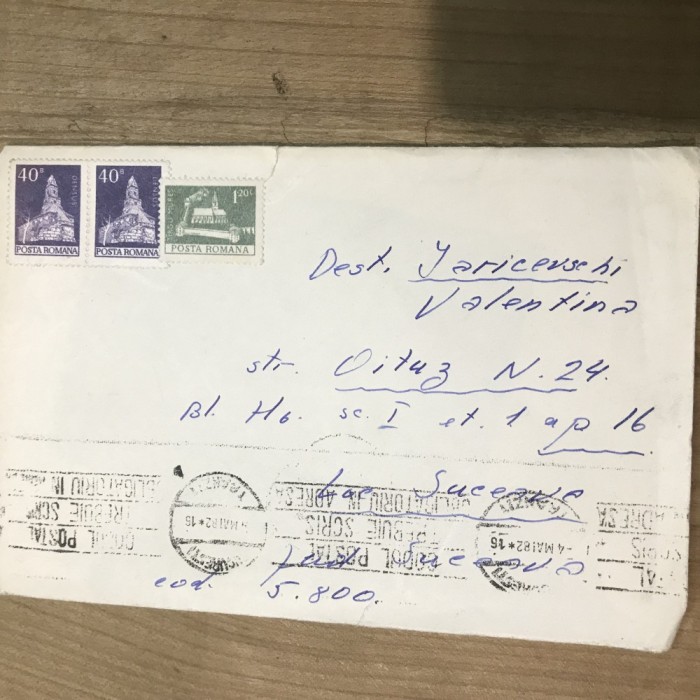 40B DENSUȘ
POSTA ROMANA
40B
POSTA ROMANA
1,20L
POSTA ROMANA
Dest. Iaricevschi
Valentina
str. Oituz N. 24.
Bl. H6. sc. I et. 1 ap 16
Loc. Suceava
Jud. Suceava
cod. 5.800.
CODUL POSTAL
TREBUIE SCRIS
OBLIGATORIU IN ADRESA
TRANZIT
4 MAI 82 * 16
BUCURESTI